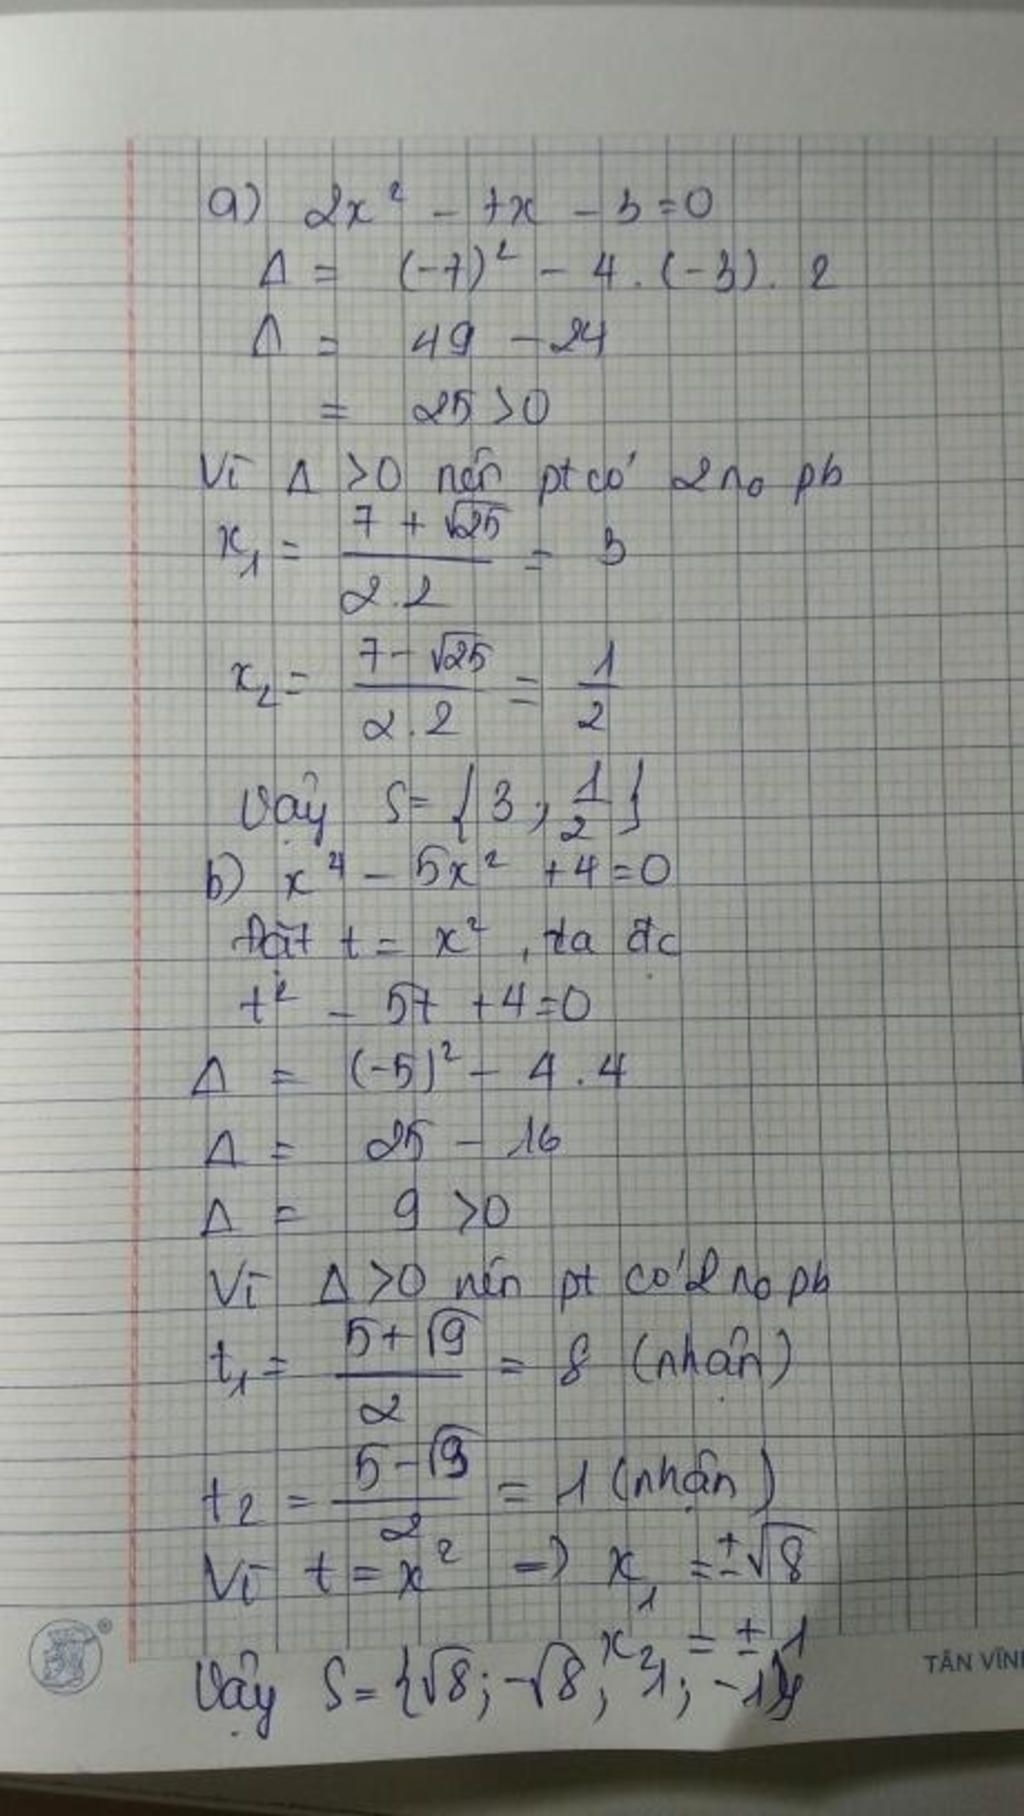 a) 2x² - 7x - 3 = 0
Δ = (-7)² - 4 . (-3) . 2
Δ = 49 - 24
= 25 > 0
Vì Δ > 0 nên pt có 2 no pb
x₁ = (7 + √25)/(2.2) = 3
x₂ = (7 - √25)/(2.2) = 1/2
Vậy S = {3; 1/2}
b) x⁴ - 5x² + 4 = 0
Đặt t = x², ta đc
t² - 5t + 4 = 0
Δ = (-5)² - 4 . 4
Δ = 25 - 16
Δ = 9 > 0
Vì Δ > 0 nên pt có 2 no pb
t₁ = (5 + √9)/2 = 8 (nhận)
t₂ = (5 - √9)/2 = 1 (nhận)
Vì t = x² => x₁ = ±√8
x₂ = ± 1
Vậy S = {√8; -√8; 1; -1}
®
TÂN VĨN